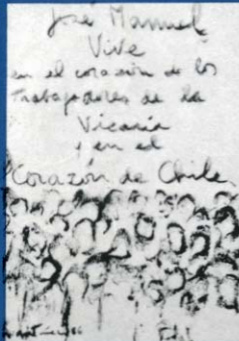 José Manuel
Vive
en el corazón de los
trabajadores de la
Vicaría
y en el
Corazón de Chile